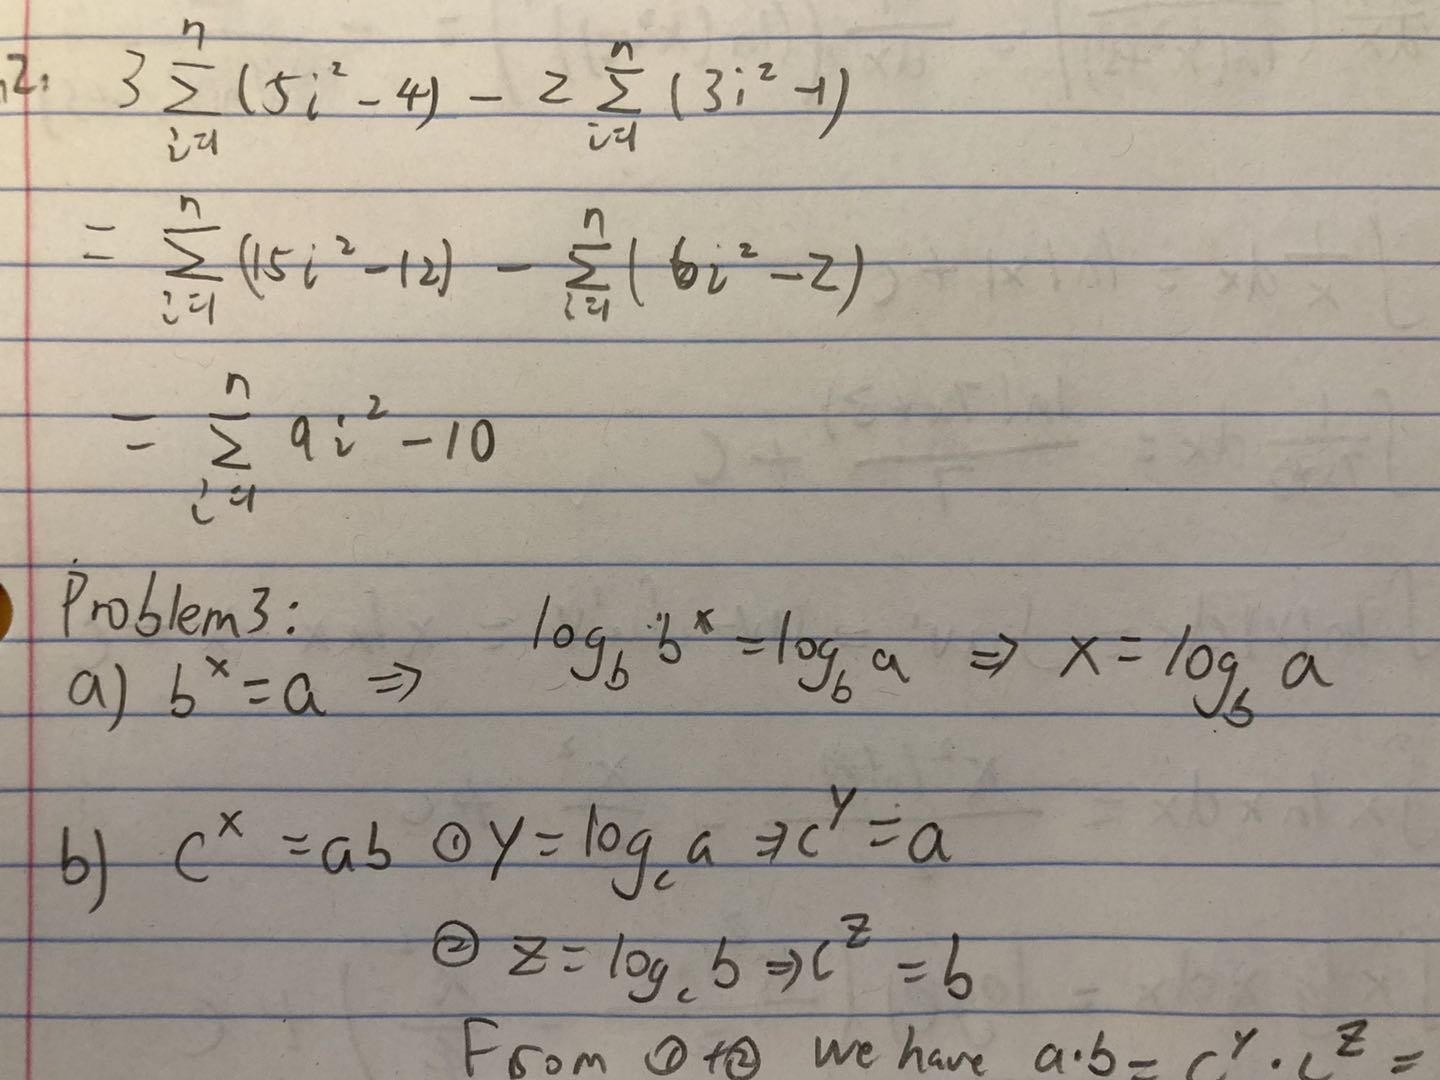 2. 3 n Σ i=1 (5i² - 4) - 2 n Σ i=1 (3i² - 1)
= n Σ i=1 (15i² - 12) - n Σ i=1 (6i² - 2)
= n Σ i=1 9i² - 10
Problem 3:
a) bˣ = a ⇒ log_b bˣ = log_b a ⇒ x = log_b a
b) cˣ = ab ① y = log_c a ⇒ c^y = a
② z = log_c b ⇒ c^z = b
From ① + ② we have a·b = c^y · c^z =